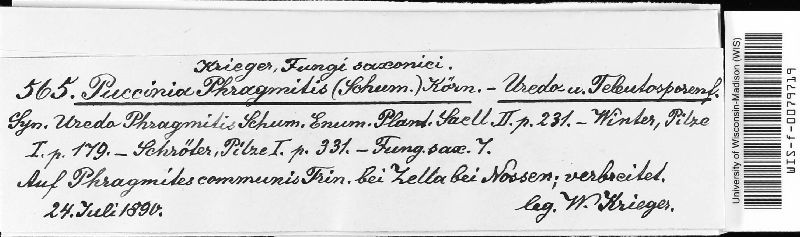 Krieger, Fungi saxonici.
565. Puccinia Phragmitis (Schum.) Körn. - Uredo u. Teleutosporenf.
Syn. Uredo Phragmitis Schum. Enum. Plant. Saell. II. p. 231. - Winter, Pilze
I. p. 179. - Schröter, Pilze I. p. 331. - Fung. sax. 7.
Auf Phragmites communis Trin. bei Zella bei Nossen; verbreitet.
24. Juli 1890. leg. W. Krieger.
University of Wisconsin-Madison (WIS)
WIS-f-0079719